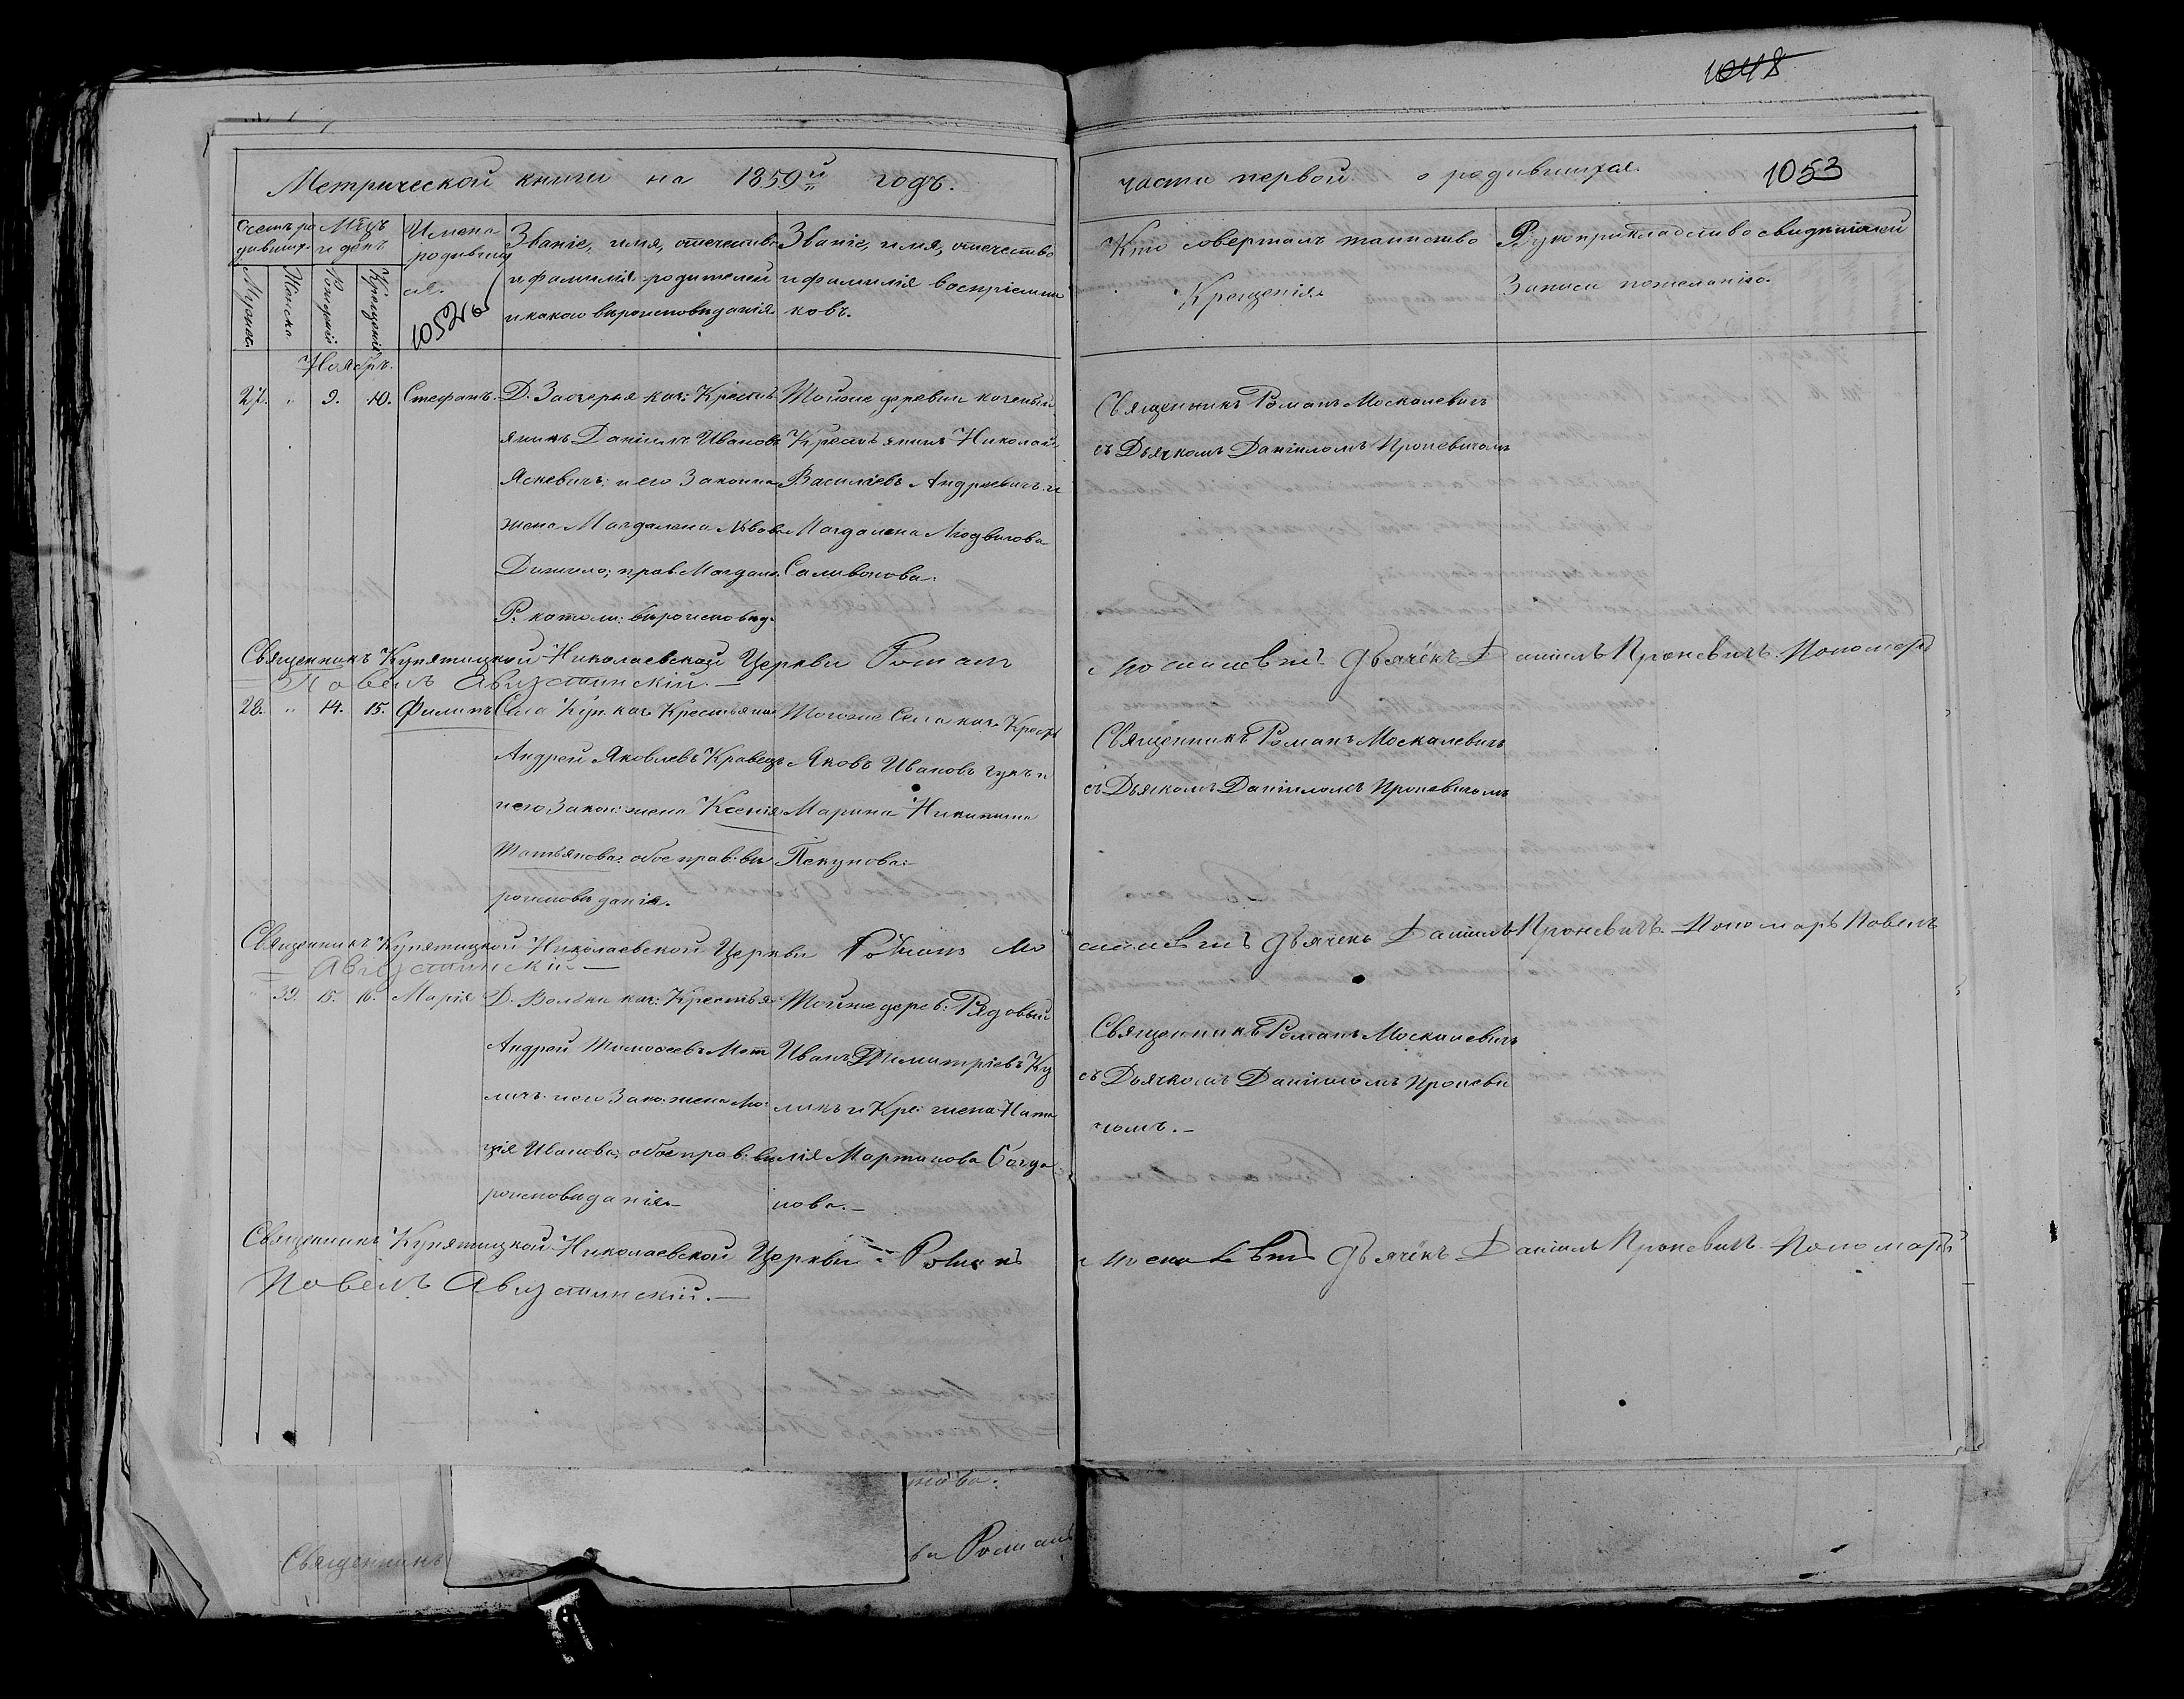 1048
Метрической книги на 1859й годъ.
части первой о родившихся.
1053
Счетъ ро
дивших.
Мцъ
и день
Имена
родивших
ся.
Званіе, имя, отечество
и фамилія родителей
и какого вѣроисповѣданія.
Званіе, имя, отечество
и фамилія воспріемни
ковъ.
Кто совершалъ таинство
Крещенія.
Рукоприкладство свидѣтелей
Записи по желанію.
Мужеск.
Женска.
Рожденій
Крещенія
1052об
Ноябрь.
27. " 9. 10. Стефанъ.
Д. Заозерья каз: Крестья
янинъ Даніилъ Ивановъ
Яскевичъ; и его Законна
жена Магдалена Львова
прав. Магдале.
Р. католи: вѣроисповѣд.
Тойже деревни казеный
Крестьянинъ Николай
Василіевъ Андреевичъ и
Магдалена Людвигова
Саливонова.
Священникъ Романъ Москалевичъ
съ Дьячкомъ Даніиломъ Проневичомъ
Священникъ Купятицкой Николаевской Церкви Романъ
Москалевичъ Дьячёкъ Даніилъ Проневичъ Пономарь
Павелъ Августинскій.
28. " 14. 15. Филипъ
Села Куп. каз. Крестьянинъ
Андрей Яковлевъ Кравецъ
и его Закон: жена Ксенія
обое прав: вѣ
роисповѣданія.
Тогоже Села каз. Крест
Яковъ Ивановъ Гукъ и
Марина Никитина
Пекунова.
Священникъ Романъ Москалевичъ
съ Дьякомъ Даніиломъ Проневичомъ
Священникъ Купятицкой Николаевской Церкви Романъ Мо
скалевичъ Дьячекъ Даніилъ Проневичъ Пономарь Павелъ
Августинскій
" 39. 15. 16. Марія
Д. Вольки каз: Крестья
Андрей Тимофеевъ
личъ и его Зако. жена Лю
ція Иванова; обое прав: вѣ
роисповѣданія.
Тойже дерев: Рядовый
Иванъ Димитріевъ Ку
ликъ и Кре: жена Ната
лія Мартинова Богда
нова.
Священникъ Романъ Москалевичъ
съ Дьячкомъ Даніиломъ Проневи
чомъ.
Священникъ Купятицкой Николаевской Церкви Романъ
Москалевичъ Дьячёкъ Даніилъ Проневичъ Пономарь
Павелъ Августинскій.
Священникъ
Романъ